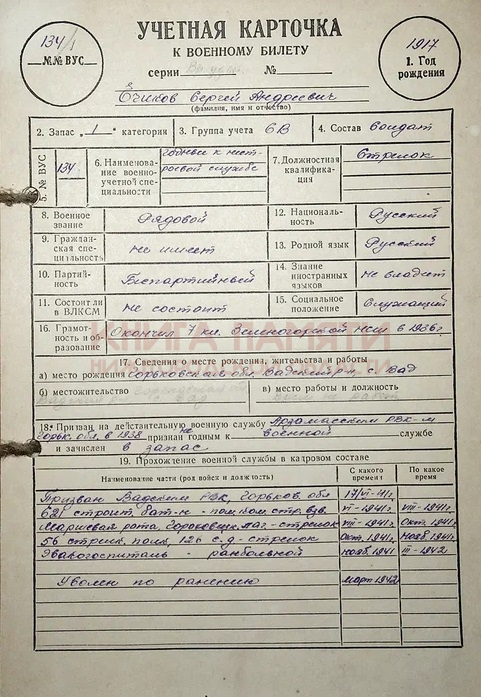 134/1
№№ ВУС
УЧЕТНАЯ КАРТОЧКА
К ВОЕННОМУ БИЛЕТУ
серии №
1917
1. Год рождения
Сергей Андреевич
(фамилия, имя и отчество)
2. Запас „1“ категории
3. Группа учета 6В
4. Состав солдат
5. № ВУС
134
6. Наименование военно-учетной специальности
годный к нестроевой службе
7. Должностная квалификация
Стрелок
8. Военное звание
Рядовой
12. Национальность
Русский
9. Гражданская специальность
не имеет
13. Родной язык
Русский
10. Партийность
Беспартийный
14. Знание иностранных языков
не владеет
11. Состоит ли в ВЛКСМ
не состоит
15. Социальное положение
Служащий
16. Грамотность и образование
Окончил 7 кл. Зеленогорской НСШ в 1936г
КНИГА ПАМЯТИ
17. Сведения о месте рождения, жительства и работы
а) место рождения Горьковская обл Вадский р-н с. Вад
б) местожительство
в) место работы и должность
18. Призван на действительную военную службу Арзамасским РВК-м
Горьк. обл. в 1938 не признан годным к военной службе
и зачислен в запас
19. Прохождение военной службы в кадровом составе
Наименование части (род войск и должность)
С какого времени
По какое время
Призван Вадским РВК, Горьков. обл
17/VI-41г.
62 строит. бат-н - стр.
VI-1941г
VIII-1941г.
Маршевая рота, Гороховец. лаг.-стрелок
VIII-1941г
Окт. 1941г
56 стрелк. полк, 126 с.д-стрелок
Окт. 1941г
Нояб. 1941г
Эвакогоспиталь - ранбольной
Нояб. 1941
III-1942
Уволен по ранению
март 1942